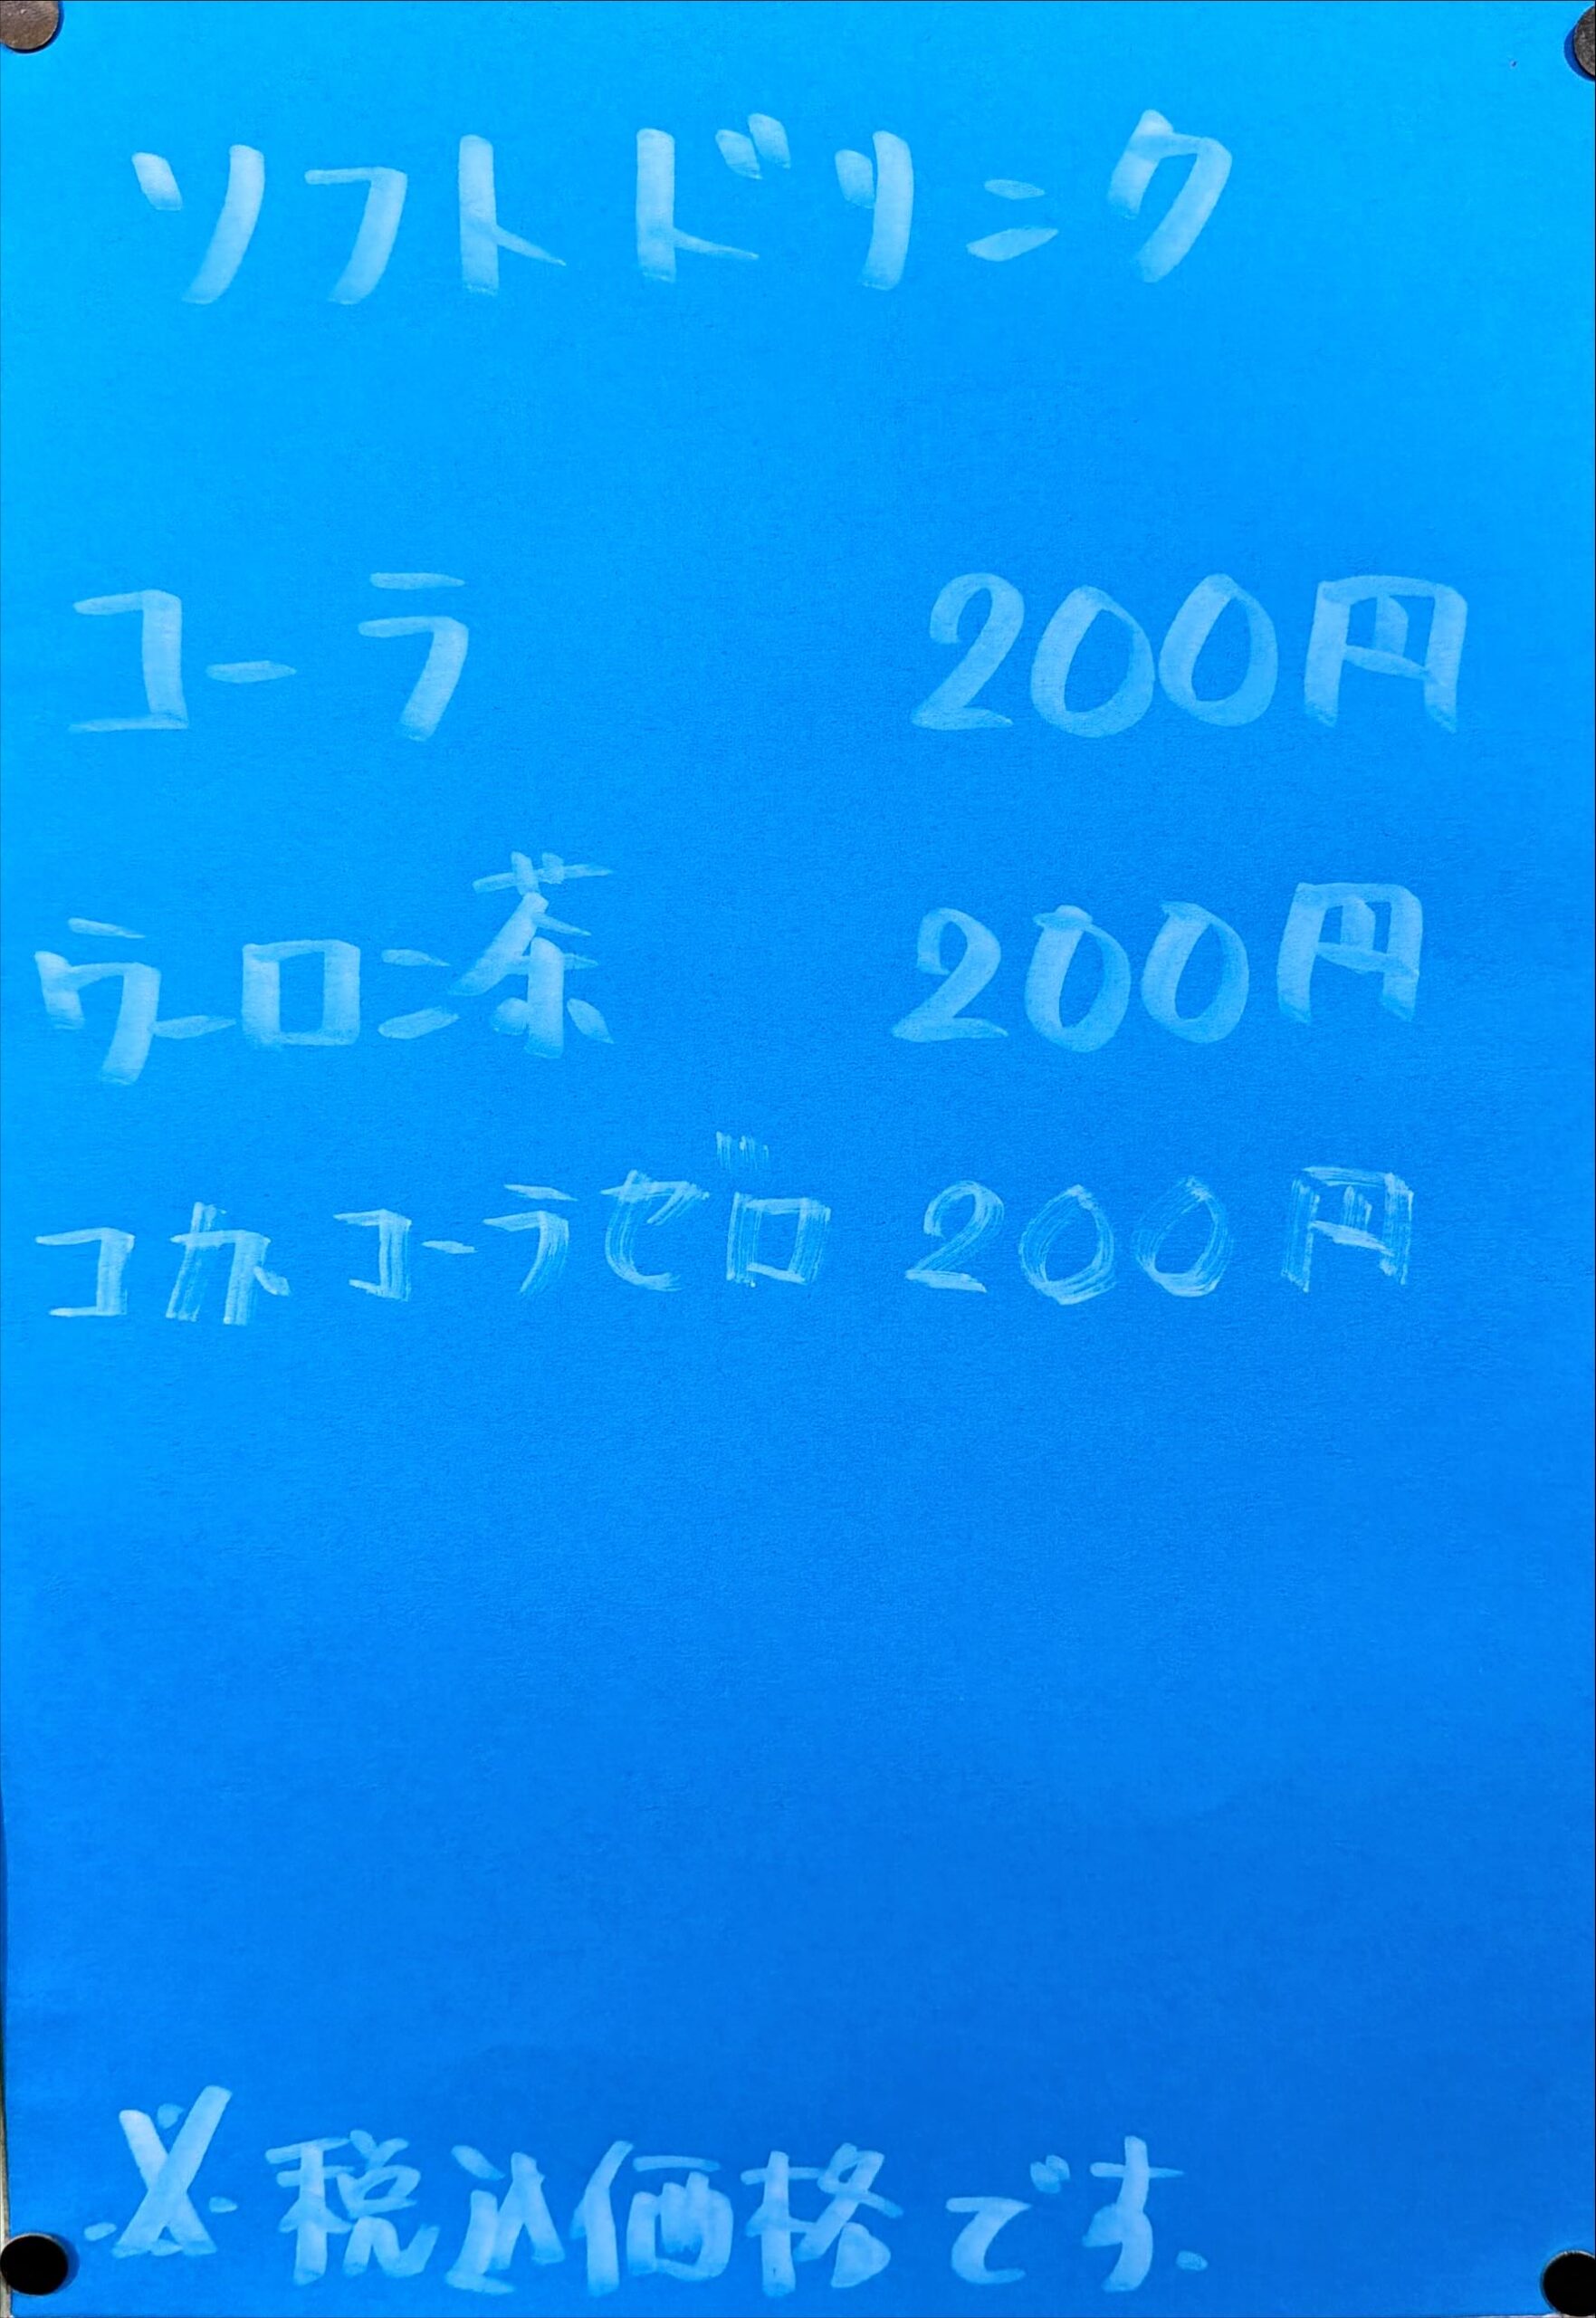 ソフトドリンク
コーラ 200円
ウーロン茶 200円
コカコーラゼロ 200円
※税込価格です.